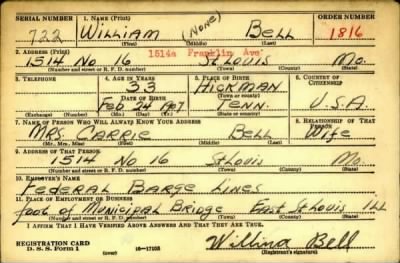 SERIAL NUMBER 1. NAME (Print) ORDER NUMBER
722 WILLIAM (NONE) BELL 1816
(First) (Middle) (Last)
1514a Franklin Ave
2. ADDRESS (Print)
1514 No 16 St Louis Mo.
(Number and street or R. F. D. number) (Town) (County) (State)
3. TELEPHONE 4. AGE IN YEARS 5. PLACE OF BIRTH 6. COUNTRY OF CITIZENSHIP
33 HICKMAN
DATE OF BIRTH (Town or county)
Feb 24 1907 TENN. U.S.A.
(Exchange) (Number) (Mo.) (Day) (Yr.) (State or country)
7. NAME OF PERSON WHO WILL ALWAYS KNOW YOUR ADDRESS 8. RELATIONSHIP OF THAT PERSON
MRS. CARRIE BELL Wife
(Mr., Mrs., Miss) (First) (Middle) (Last)
9. ADDRESS OF THAT PERSON
1514 No 16 St Louis Mo.
(Number and street or R. F. D. number) (Town) (County) (State)
10. EMPLOYER'S NAME
FEDERAL BARGE LINES
11. PLACE OF EMPLOYMENT OR BUSINESS
foot of Municipal Bridge East St Louis ILL
(Number and street or R. F. D. number) (Town) (County) (State)
I AFFIRM THAT I HAVE VERIFIED ABOVE ANSWERS AND THAT THEY ARE TRUE.
REGISTRATION CARD
D. S. S. Form 1 16—17105 Bell
(Registrant's signature)